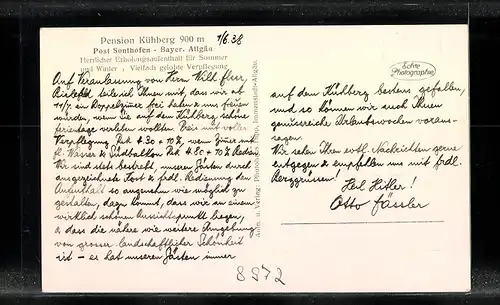 Pension Kühberg 900 m
1/6.38
Post Sonthofen - Bayer. Allgäu
Herrlicher Erholungsaufenthalt für Sommer
und Winter . Vielfach gelobte Verpflegung
Auf Veranlassung von Herrn Wilh.
teile ich Ihnen mit, dass wir ab
11/7 ein Doppelzimer frei haben & uns freuen
würden, wenn Sie auf dem Kühberg, schöne
Ferientage verleben wollten. Preis mit voller
Verpflegung 4.30 + 10 %, wenn Zimer mit
fl. Wasser & Südbalkon 5 + 10 %
Wir sind stets bestrebt unseren Gästen durch
ausgezeichnete Kost & frdl. Bedienung den
Aufenthalt so angenehm wie möglich zu
gestalten, dazu kommt, dass wir an einem
wirklich schönen Aussichtspunkt liegen,
& dass die nähre wie weitere Umgebung
von grosser landschaftlicher Schönheit
ist - es hat unseren Gästen immer
Echte
Photographie
auf dem Kühberg bestens gefallen,
und so können wir auch Ihnen
genussreiche Urlaubswochen voraus-
sagen.
Wir sehen Ihren evtl. Nachrichten gerne
entgegen & empfehlen uns mit frdl.
Berggrüssen!
Heil Hitler!
Otto Fässler
8872